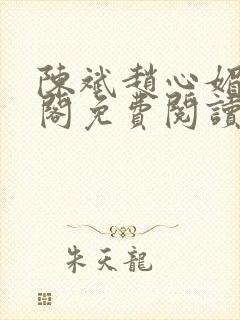 陳斌趙心媚
閣免費閱讀
朱天龍